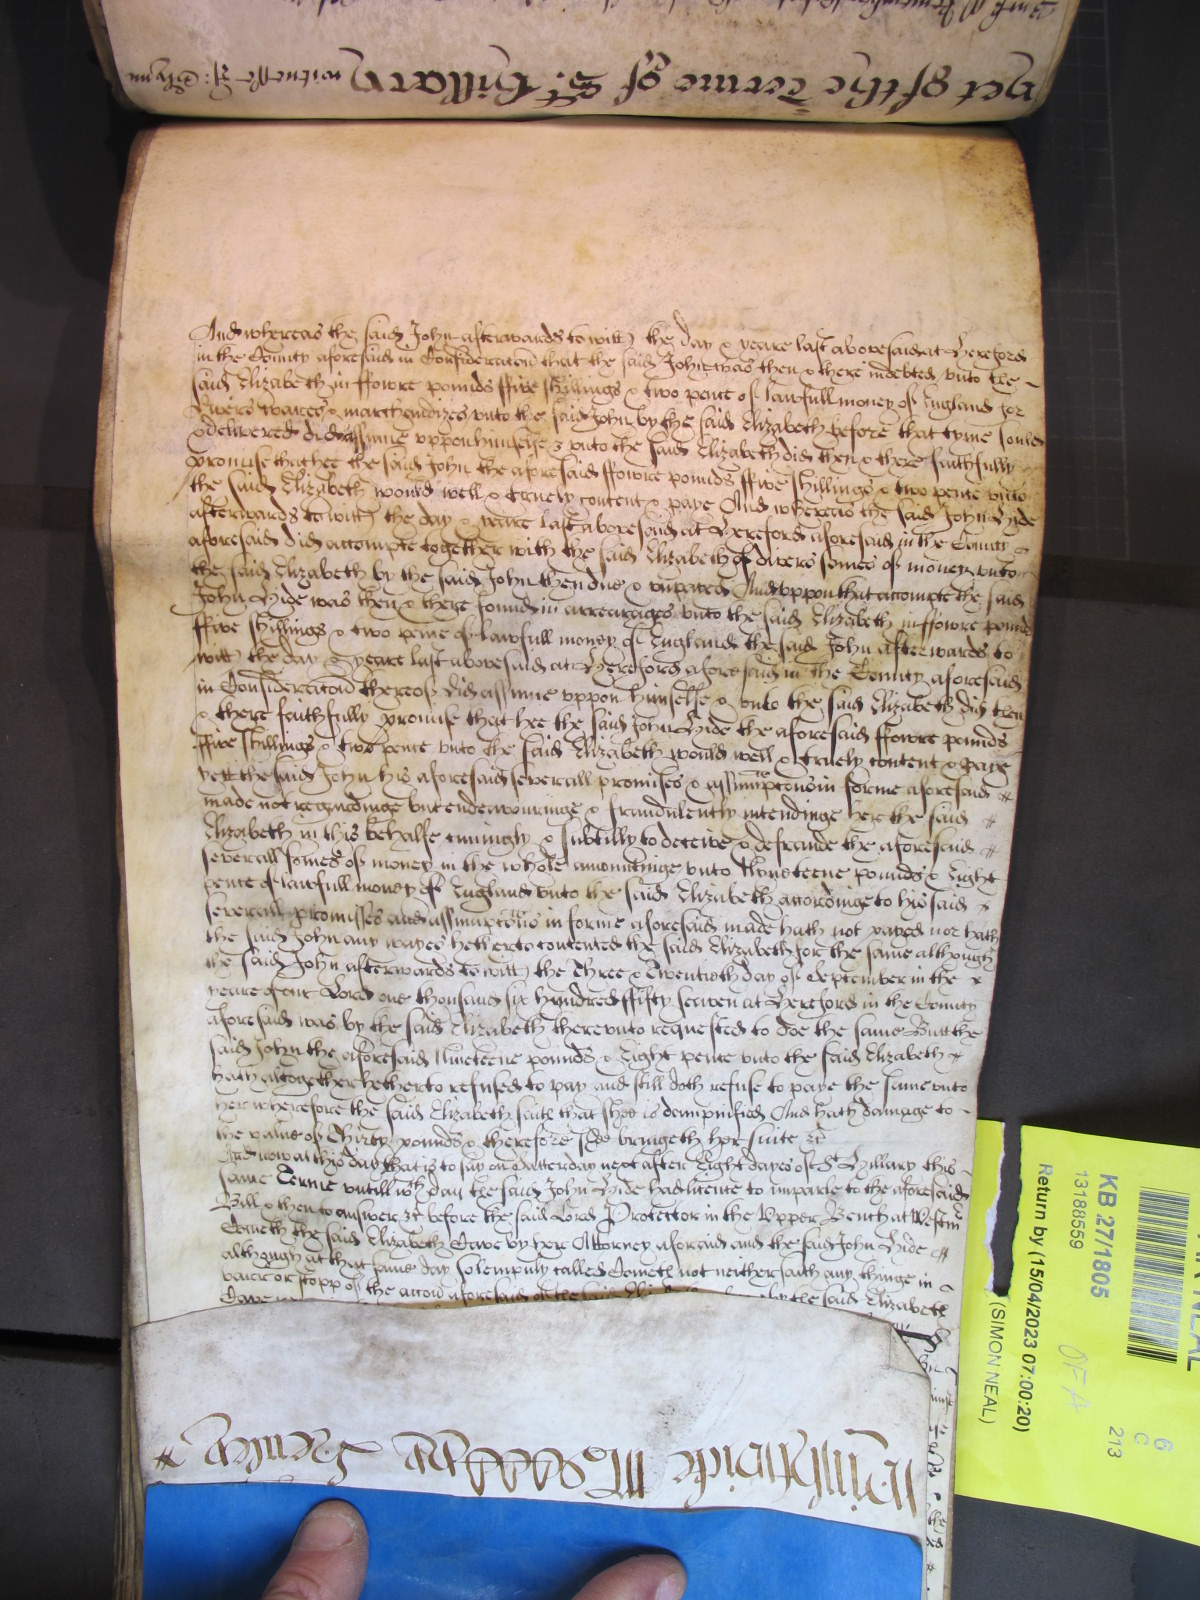 yet of the Terme of St. Hillary witnesse R: Glynn
And whereas the said John afterwards to witt the day & yeare last abovesaid at Hereford
in the County aforesaid in Consideracon that the said John was then & there indebted unto the
said Elizabeth in ffowre pounds ffive shillings & two pence of lawfull money of England for
divers wares & marchandizes unto the said John by the said Elizabeth before that tyme sould
& delivered did assume uppon himselfe & unto the said Elizabeth did then & there faithfully
promise that hee the said John the aforesaid ffowre pounds ffive shillings & two pence unto
the said Elizabeth would well & truely content & paye And whereas the said John Hide
afterwards to witt the day & yeare last abovesaid at Hereford aforesaid in the County
aforesaid did accompte together with the said Elizabeth of divers somes of money unto
the said Elizabeth by the said John then due & unpayed And uppon that accompte the said
John Hide was then & there found in arrearages unto the said Elizabeth in ffowre pounds
ffive shillings & two pence of lawfull money of England the said John afterwards to
witt the day & yeare last abovesaid at Hereford aforesaid in the County aforesaid
in Consideracon thereof did assume uppon himselfe & unto the said Elizabeth did then
& there faithfully promise that hee the said John Hide the aforesaid ffowre pounds
ffive shillings & two pence unto the said Elizabeth would well & truely content & paye
yett the said John his aforesaid severall promises & assumptons in forme aforesaid
made not regardinge but endeavouringe & fraudulently intendinge her the said
Elizabeth in this behalfe cuningly & subtilly to deceive & defraude the aforesaid
severall somes of money in the whole amountinge unto Nyneteene pounds & Eight
pence of lawfull money of England unto the said Elizabeth accordinge to his said
severall promisses and assumptons in forme aforesaid made hath not payed nor hath
the said John any wayes hetherto contented the said Elizabeth for the same although
the said John afterwards to witt the Three & Twentieth day of September in the
yeare of our Lord one thousand six hundred ffifty seaven at Hereford in the County
aforesaid was by the said Elizabeth thereunto requested to doe the same But the
said John the aforesaid Nineteene pounds & Eight pence unto the said Elizabeth
hath altogether hetherto refused to pay and still doth refuse to paye the same unto
her wherefore the said Elizabeth saith that shee is dampnified And hath damage to
the value of Thirty pounds & therefore shee bringeth her suite &c
And now at this day that is to say on Satterday next after Eight dayes of St Hillary this
same Terme untill wch day the said John Hide had licence to imparle to the aforesaid
Bill & then to answer &c before the said Lord Protector in the Upper Bench at Westm
Cometh the said Elizabeth Cave by her Attorney aforesaid and the said John Hide
although at that same day solempnly called Cometh not neither saith any thinge in
barr or stopp of the accon aforesaid of the said Elizabeth
by the said Elizabeth
Cave
KB 27/1805
13188559
Return by (15/04/2023 07:00:20)
(SIMON NEAL)
OFA
6
C
213